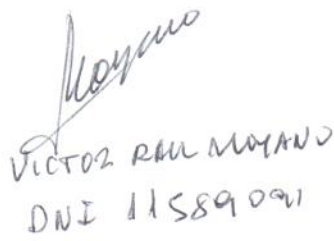 Moyano
VICTOR RAUL MOYANO
DNI 11589091